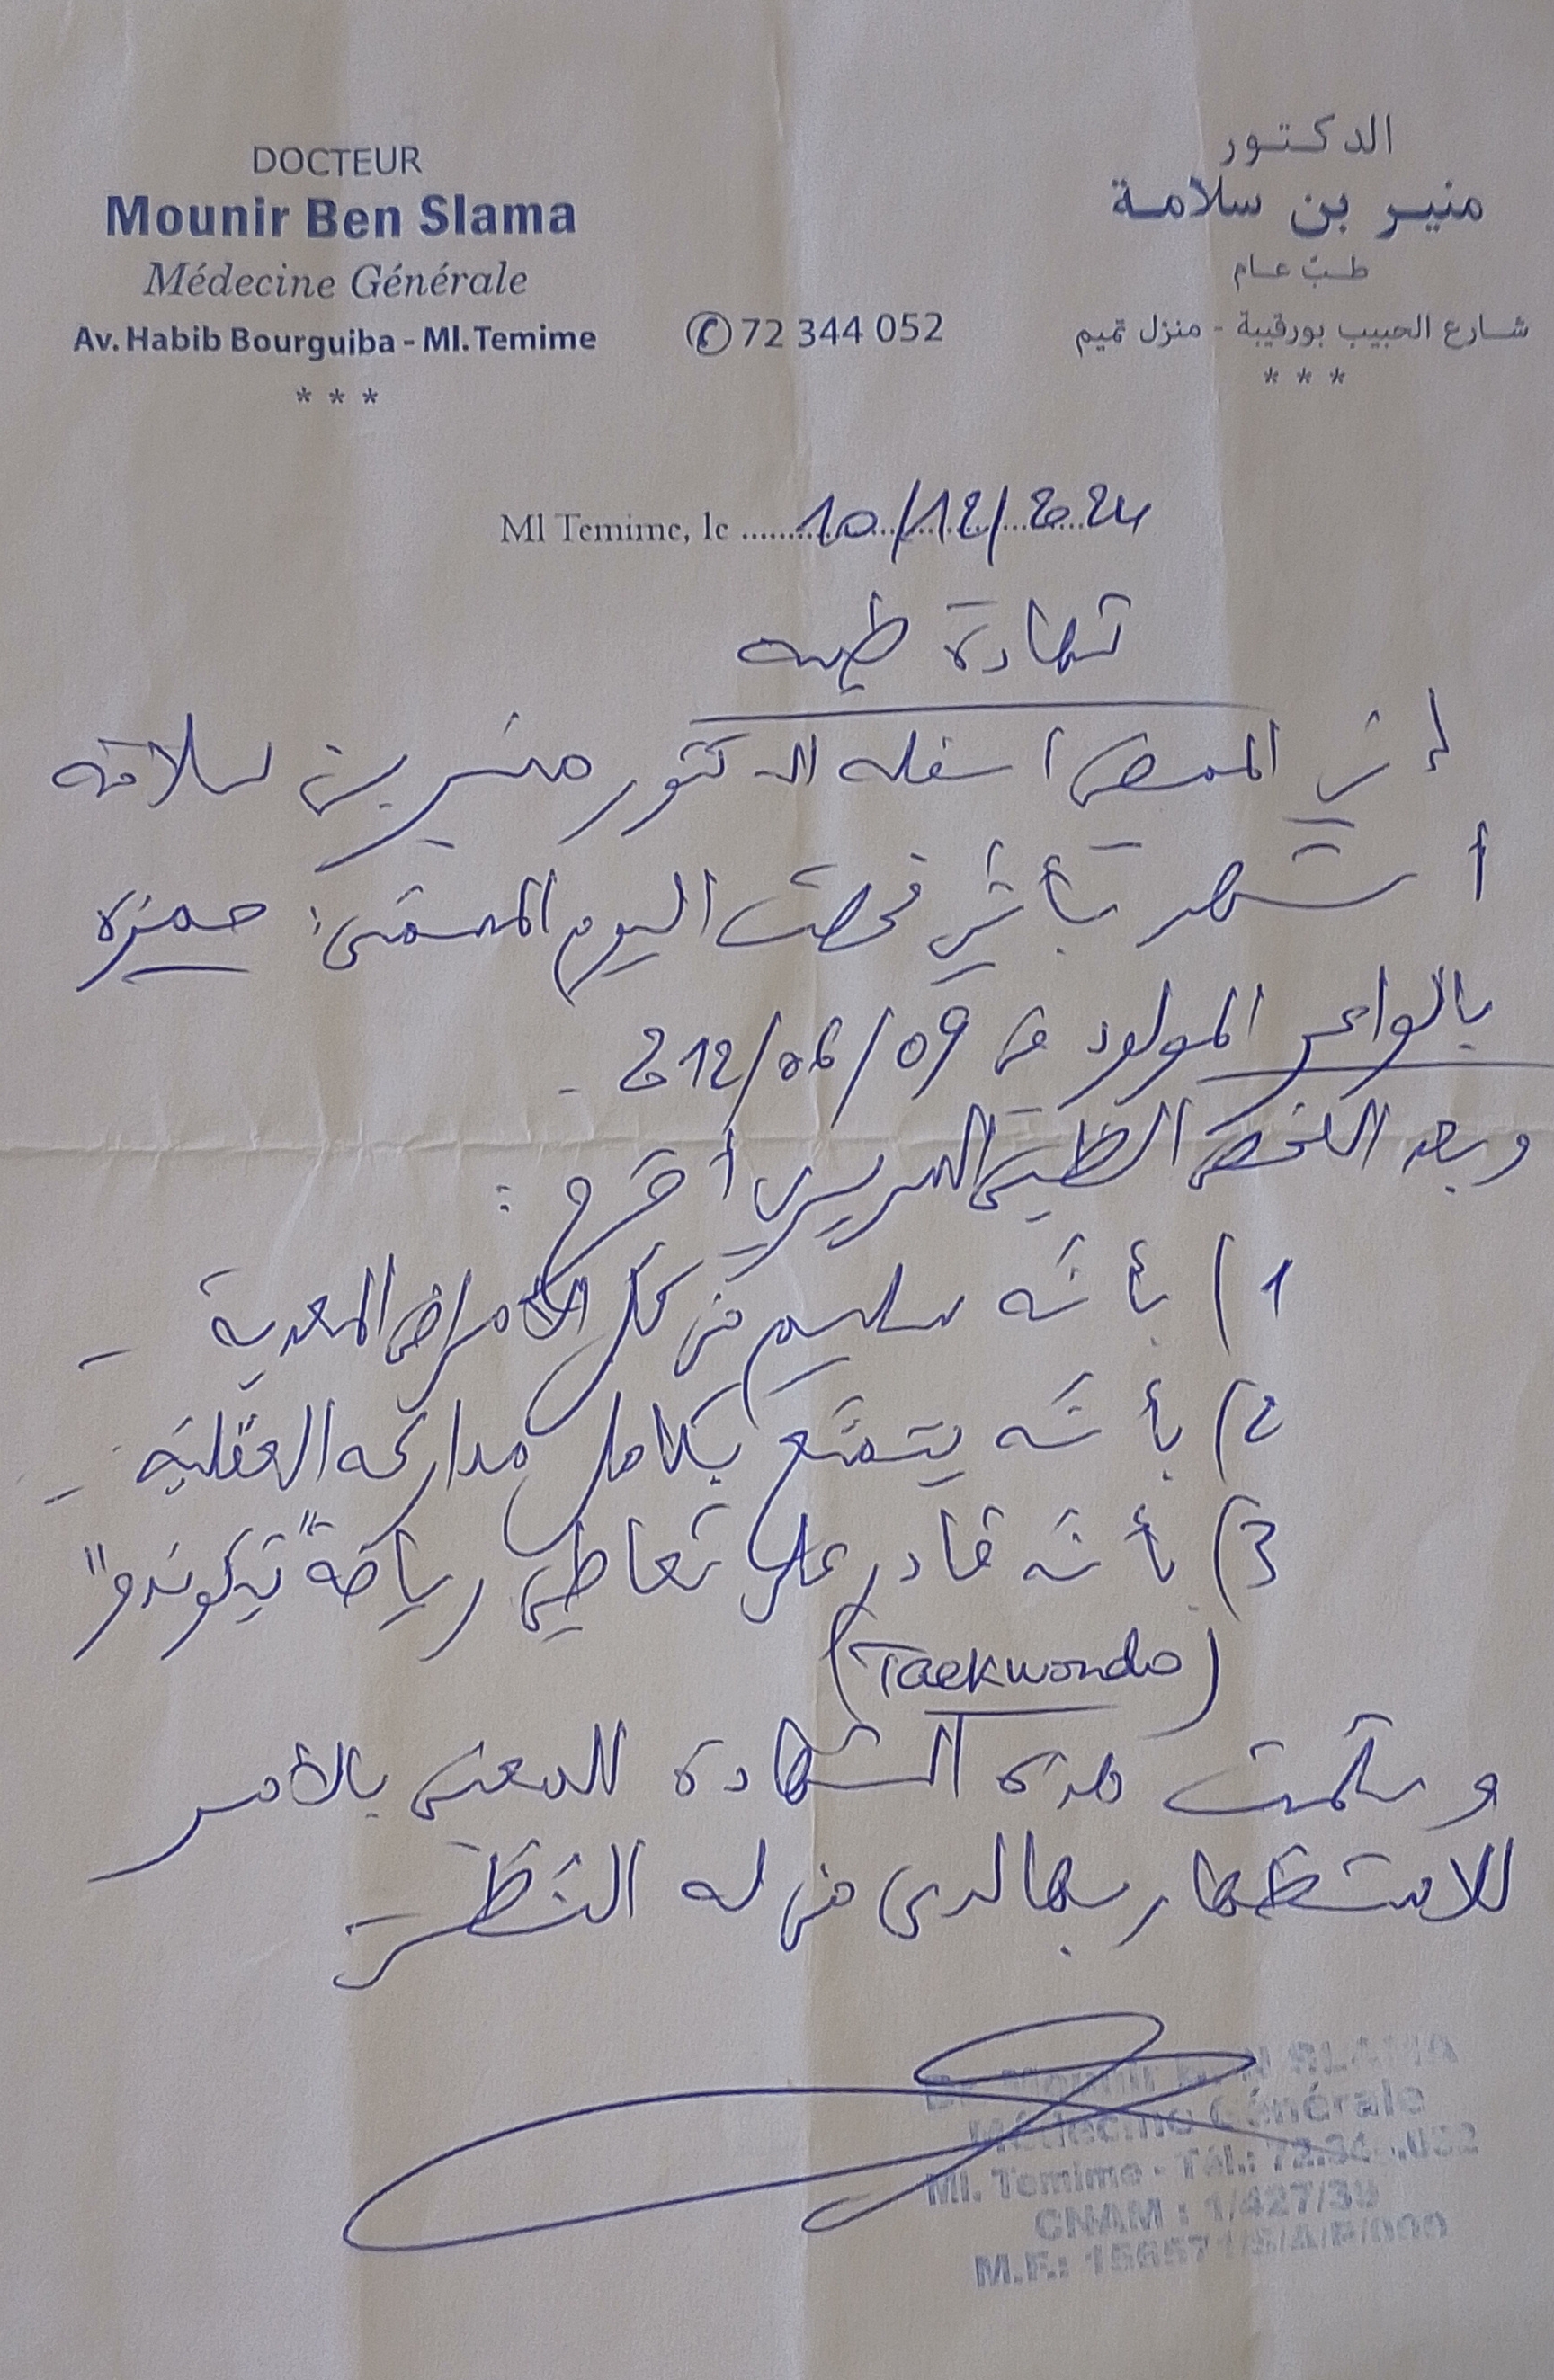 DOCTEUR
Mounir Ben Slama
Médecine Générale
Av. Habib Bourguiba - Ml. Temime
* * *
✆ 72 344 052
الدكتور
منير بن سلامة
طب عام
شارع الحبيب بورقيبة - منزل تميم
* * *
Ml Temime, le 10/12/2024
شهادة طبية
إني الممضي أسفله الدكتور منير بن سلامة
أشهد بأني فحصت اليوم المسمى: حمزة
بالواعر المولود في 212/06/09 -
وبعد الفحص الطبي السريري أصرح :
1) بأنه سليم من كل الأمراض المعدية -
2) بأنه يتمتع بكامل مداركه العقلية -
3) بأنه قادر على تعاطي رياضة "تيكوندو"
(Taekwondo)
وسلمت هذه الشهادة للمعني بالأمر
للاستظهار بها لدى من له النظر -
Dr Mounir BEN SLAMA
Médecine Générale
Ml. Temime - Tél.: 72.34 .052
CNAM : 1/427/39
M.F.: